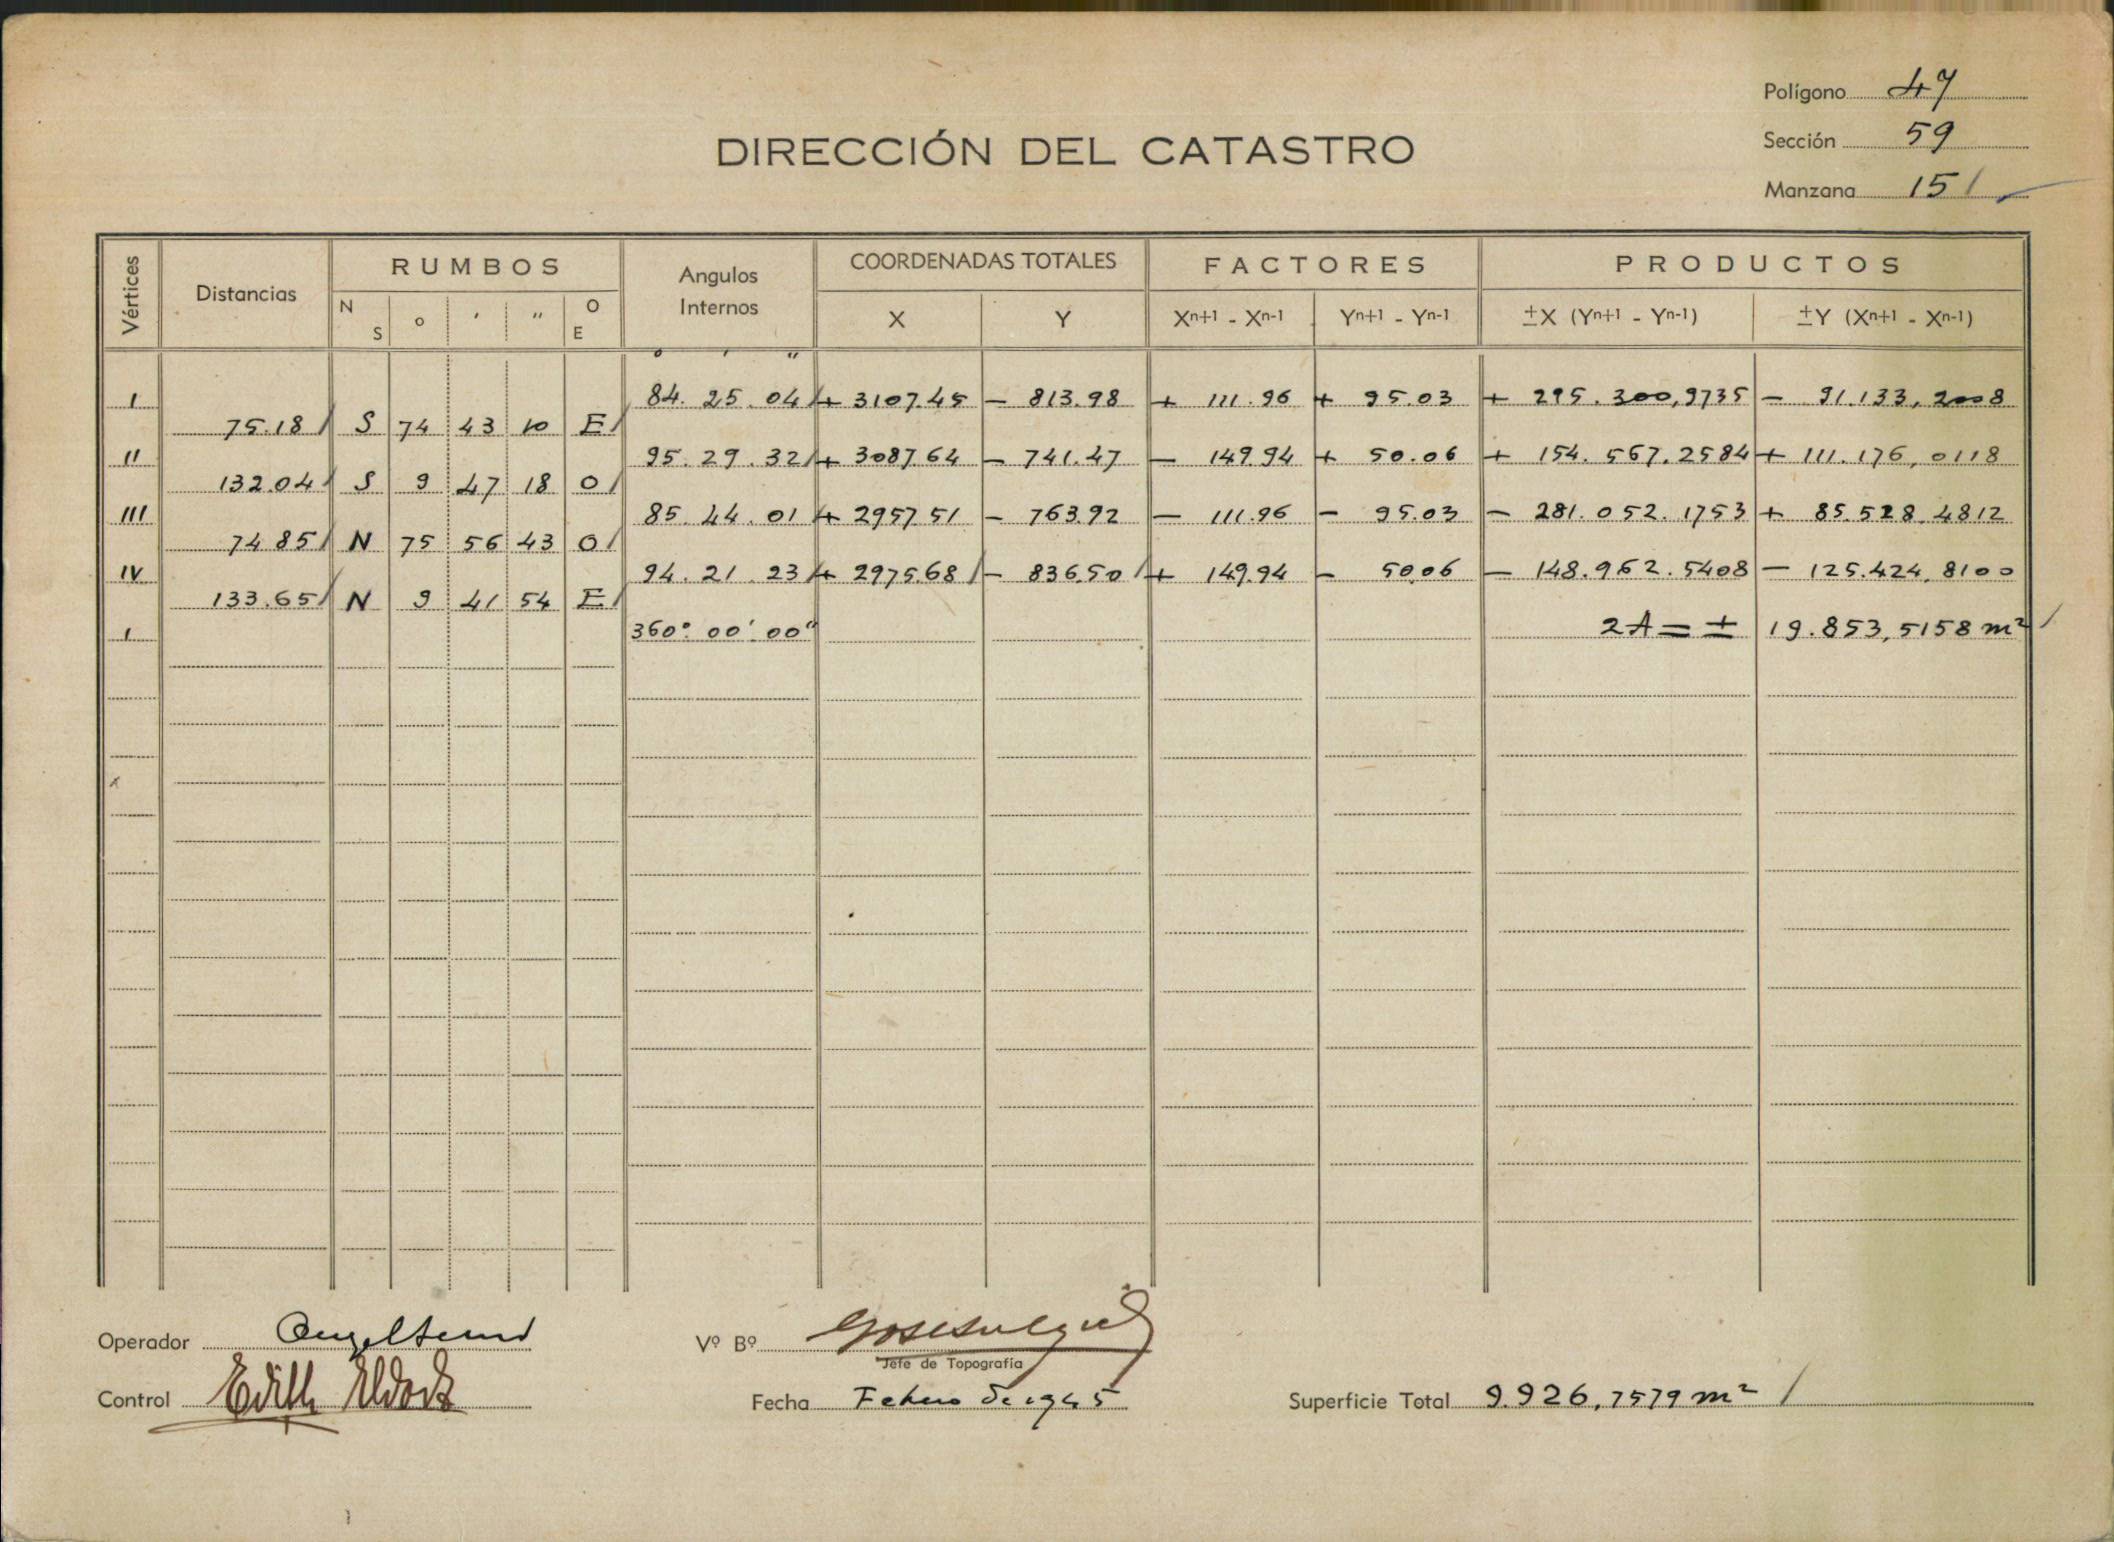 Polígono 47
DIRECCIÓN DEL CATASTRO
Sección 59
Manzana 151
Vértices Distancias RUMBOS Angulos Internos COORDENADAS TOTALES FACTORES PRODUCTOS
N S o ′ ″ O E X Y Xn+1 - Xn-1 Yn+1 - Yn-1 ±X (Yn+1 - Yn-1) ±Y (Xn+1 - Xn-1)
o ′ ″
I 84. 25. 04 + 3107.45 - 813.98 + 111.96 + 95.03 + 295.300,9735 - 91.133,2008
75.18 S 74 43 10 E
II 95. 29. 32 + 3087.64 - 741.47 - 149.94 + 50.06 + 154.567.2584 + 111.176,0118
132.04 S 9 47 18 O
III 85. 44. 01 + 2957.51 - 763.92 - 111.96 - 95.03 - 281.052.1753 + 85.528.4812
74.85 N 75 56 43 O
IV 94. 21. 23 + 2975.68 - 836.50 + 149.94 - 50.06 - 148.962.5408 - 125.424.8100
133.65 N 9 41 54 E
I 360° 00' 00" 2A = ± 19.853,5158 m²
Operador
Vº Bº
Jefe de Topografía
Control Edith
Fecha Febrero de 1945
Superficie Total 9.926,7579 m²